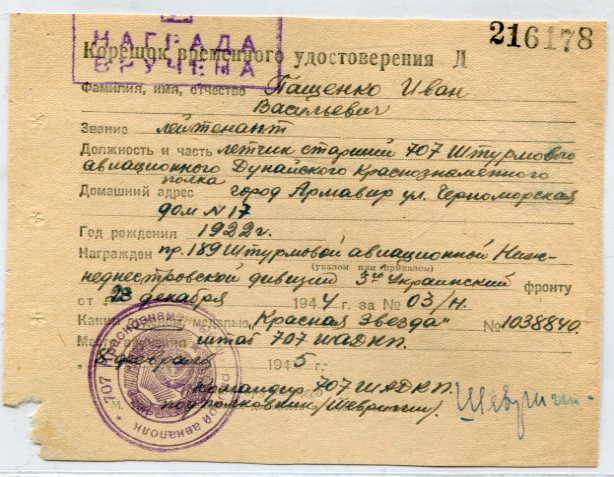 НАГРАДА
ВРУЧЕНА
Корешок временного удостоверения Д 216178
Фамилия, имя, отчество Пащенко Иван
Васильевич
Звание лейтенант
Должность и часть летчик старший 707 Штурмового
авиационного Дунайского Краснознаменного
полка
Домашний адрес город Армавир ул. Черноморская
дом N 17
Год рождения 1922 г.
Награжден пр. 189 Штурмовой авиационной Ниж-
(указом или приказом)
неднестровской дивизии 3го Украинский фронту
от 23 декабря 1944 г. за № 03/н.
Каким орденом, медалью „Красная Звезда" № 1038840.
Место вручения штаб 707 ШАДКП.
„8 февраля 1945 г.
Командир 707 ШАДКП.
М. П. подполковник /Шевригин/. Шевригин
707 Краснознам авиаполк